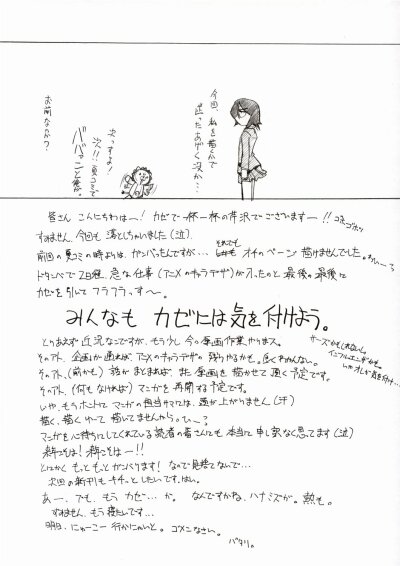 今回、私を描くって
言ったあげく没か…
次っすよ!
次!!夏コミで
ババァーンと俺が。
お前なのか?
皆さん こんにちわはー! カゼで一杯一杯の芹沢でございますー!! ゴホゴホッ
すみません、今回も落としちゃいました(泣)
前回の夏コミの時よりは、ガンバったんですが… それでも オチのペーン 描けませんでした。
ドタンバで2日程、急な仕事(アニメのキャラデザ)が入ったのと最後の最後に
カゼを引いてフラフラっすー。
みんなも カゼには気を付けよう。
サーズかもしれないし、
インフルエンザかも
とりあえず近況なこですが、もう少し今の原画作業やりマス。
その後、企画が通ればアニメのキャラデザの残りやるかも。良くわかんない。
その後、(前かも)話がまとまれば、また原画を描かせて頂く予定です。
その後、(何もなければ)マンガを再開する予定です。
いや、もうホントにマンガの担当サマには、頭が上がりません(汗)
描く、描くゆーて描いてませんから。
マンガを心待ちにしてくれている読者の皆さんにも本当に申し訳なく思ってます(泣)
とにかく もっともっとガンバります! なので見捨てないで…
次回の新刊もキチっとしたいです。はい。
あー、でも、もう カゼ…か。 なんですかね、ハナミズが。熱も。
すみません、もう寝たいです…
明日、にゅーこー行かにゃいと。 ゴメンなさい。
バタリ。